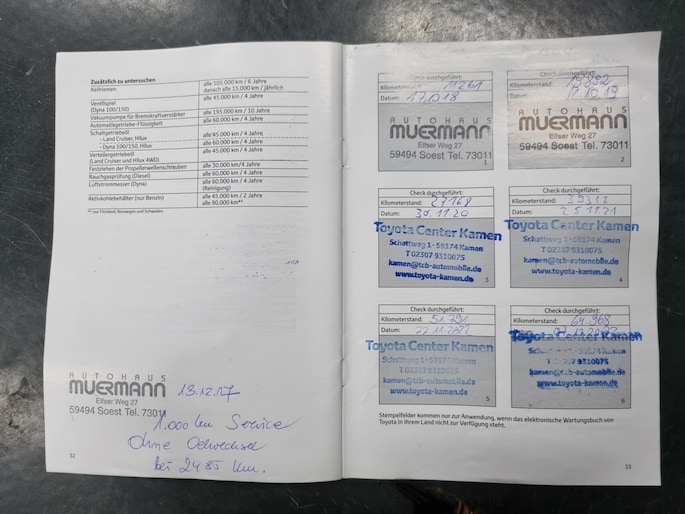 Zusätzlich zu untersuchen
Keilriemen
alle 105.000 km / 6 Jahre
danach alle 15.000 km / jährlich
Ventilspiel
(Dyna 100/150)
alle 45.000 km / 4 Jahre
Vakuumpumpe für Bremskraftverstärker
alle 195.000 km / 10 Jahre
Automatikgetriebe-Flüssigkeit
alle 60.000 km / 4 Jahre
Schaltgetriebeöl
- Land Cruiser, Hilux
alle 45.000 km / 4 Jahre
- Dyna 100/150, Hilux
alle 60.000 km / 4 Jahre
Verteilergetriebeöl
(Land Cruiser und Hilux 4WD)
alle 45.000 km / 4 Jahre
Festziehen der Propellerwellenschrauben
alle 30.000 km/4 Jahre
Rauchgasprüfung (Diesel)
alle 60.000 km / 4 Jahre
Luftstrommesser (Dyna)
alle 60.000 km / 4 Jahre
(Reinigung)
Aktivkohlebehälter (nur Benzin)
alle 45.000 km / 2 Jahre
alle 90.000 km
nur Finnland, Norwegen und Schweden
AUTOHAUS
MUERMANN
Elfser Weg 27
59494 Soest Tel. 73011
13.12.17
1.000 km Service
Ohne Oelwechsel
bei 2485 km.
32
Check durchgeführt:
Kilometerstand: 11261
Datum:
AUTOHAUS
MUERMANN
Elfser Weg 27
59494 Soest Tel. 73011
1
Check durchgeführt:
Kilometerstand:
Datum: 17.10.19
AUTOHAUS
MUERMANN
Elfser Weg 27
59494 Soest Tel. 73011
2
Check durchgeführt:
Kilometerstand: 27168
Datum: 30.11.20
Toyota Center Kamen
Schattweg 1 · 59174 Kamen
T 02307 9310075
kamen@tcb-automobile.de
www.toyota-kamen.de
3
Check durchgeführt:
Kilometerstand: 39312
Datum: 25.11.21
Toyota Center Kamen
Schattweg 1 · 59174 Kamen
T 02307 9310075
kamen@tcb-automobile.de
www.toyota-kamen.de
4
Check durchgeführt:
Kilometerstand: 51.791
Datum: 22.11.2022
Toyota Center Kamen
Schattweg 1 · 59174 Kamen
T 02307 9310075
kamen@tcb-automobile.de
www.toyota-kamen.de
5
Check durchgeführt:
Kilometerstand: 64.968
Toyota Center Kamen
kamen@tcb-automobile.de
www.toyota-kamen.de
6
Stempelfelder kommen nur zur Anwendung, wenn das elektronische Wartungsbuch von
Toyota in Ihrem Land nicht zur Verfügung steht.
33